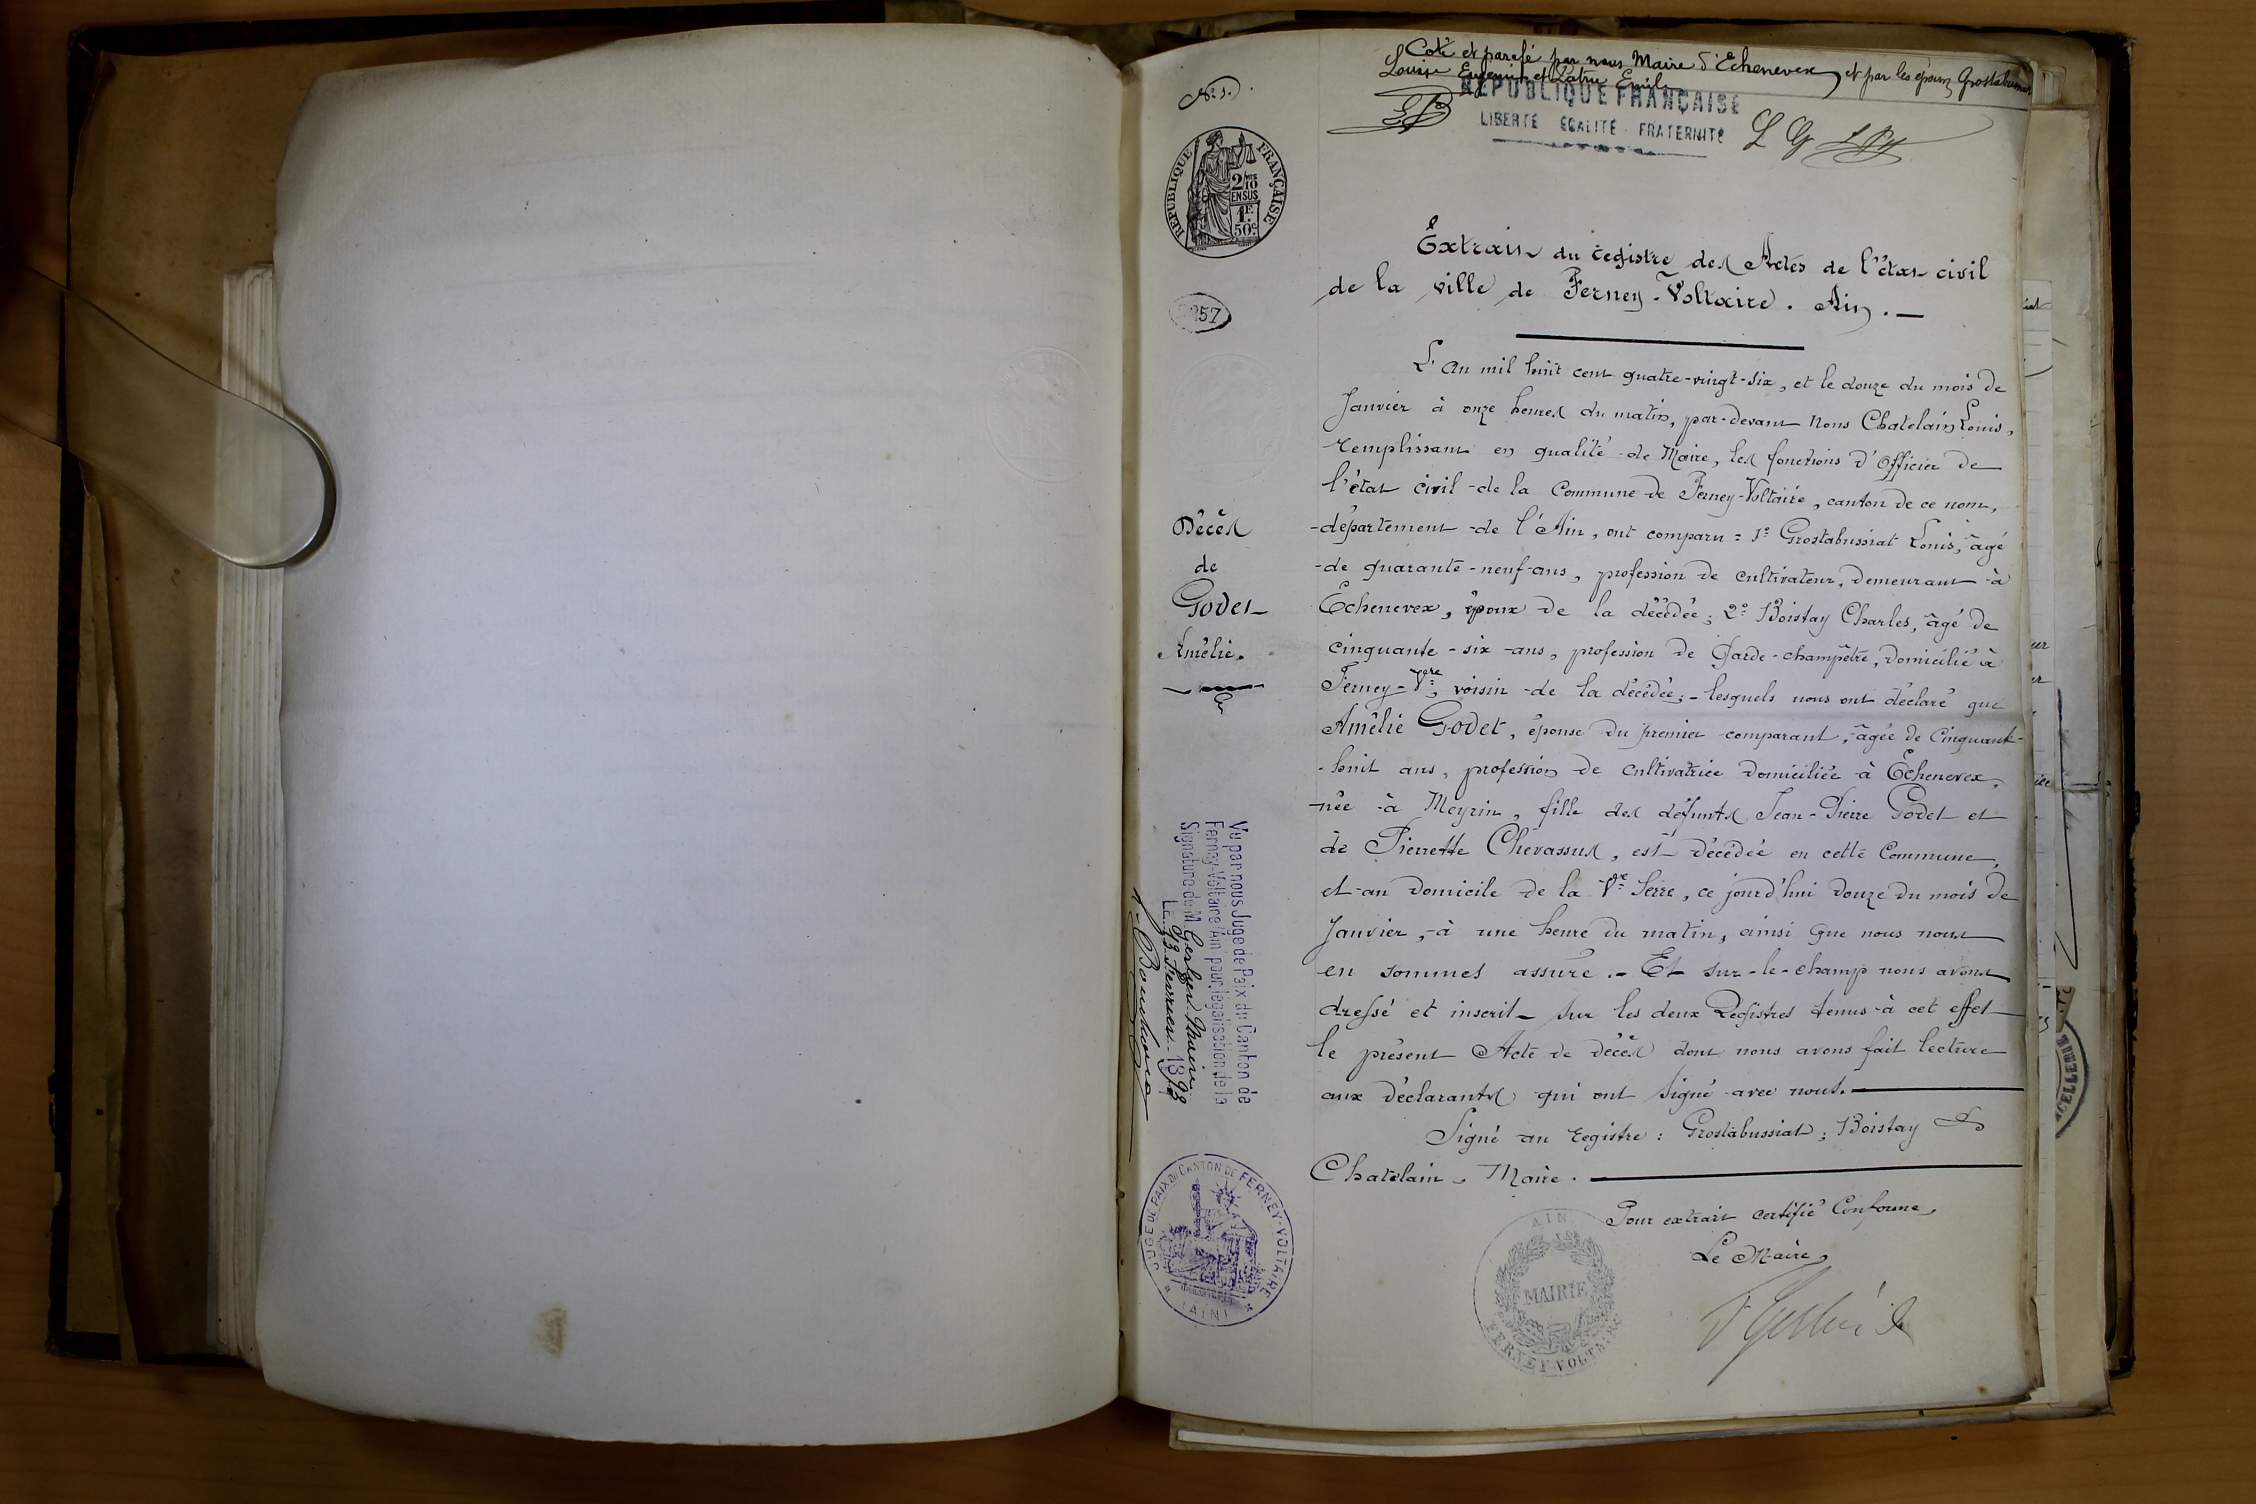 Coté et parafé par nous Maire d'Echenevex et par les époux Grostabussiat
Louise Eugénie et Emile
N° 1.
RÉPUBLIQUE FRANÇAISE
LIBERTÉ EGALITÉ FRATERNITÉ
L G
REPUBLIQUE FRANÇAISE
2/10
EN SUS
1F
50c
257
Extrait du registre des Actes de l'état civil
de la ville de Ferney-Voltaire. Ain. —
L'an mil huit cent quatre-vingt-six, et le douze du mois de
Janvier à onze heures du matin, par-devant Nous Chatelain Louis,
remplissant en qualité de Maire, les fonctions d'Officier de
l'état civil de la Commune de Ferney-Voltaire, canton de ce nom,
département de l'Ain, ont comparu = 1° Grostabussiat Louis, âgé
de quarante-neuf ans, profession de cultivateur, demeurant à
Echenevex, époux de la décédée; 2° Boistay Charles, âgé de
cinquante-six ans, profession de Garde-champêtre, domicilié à
Ferney-Vre, voisin de la décédée; - lesquels nous ont déclaré que
Amélie Godet, épouse du premier comparant, âgée de cinquante-
-huit ans, profession de cultivatrice domiciliée à Echenevex,
née à Meyrin, fille des défunts Jean-Pierre Godet et
de Pierrette Chevassus, est décédée en cette Commune,
et au domicile de la Ve Serre, ce jourd'hui douze du mois de
Janvier, à une heure du matin, ainsi que nous nous
en sommes assuré. - Et sur-le-champ nous avons
dressé et inscrit sur les deux Registres tenus à cet effet
le présent Acte de décès dont nous avons fait lecture
aux déclarants qui ont signé avec nous.
Signé au registre: Grostabussiat; Boistay &
Chatelain, Maire.
Pour extrait certifié Conforme,
Le Maire,
Décès
de
Godet
Amélie.
Vu par nous Juge de Paix du Canton de
Ferney-Voltaire (Ain) pour légalisation de la
Signature de M. Gerber Maire
Le 13 Fevrier 1893
JUGE DE PAIX DU CANTON DE FERNEY-VOLTAIRE
(AIN)
AIN
MAIRIE
FERNEY-VOLTAIRE